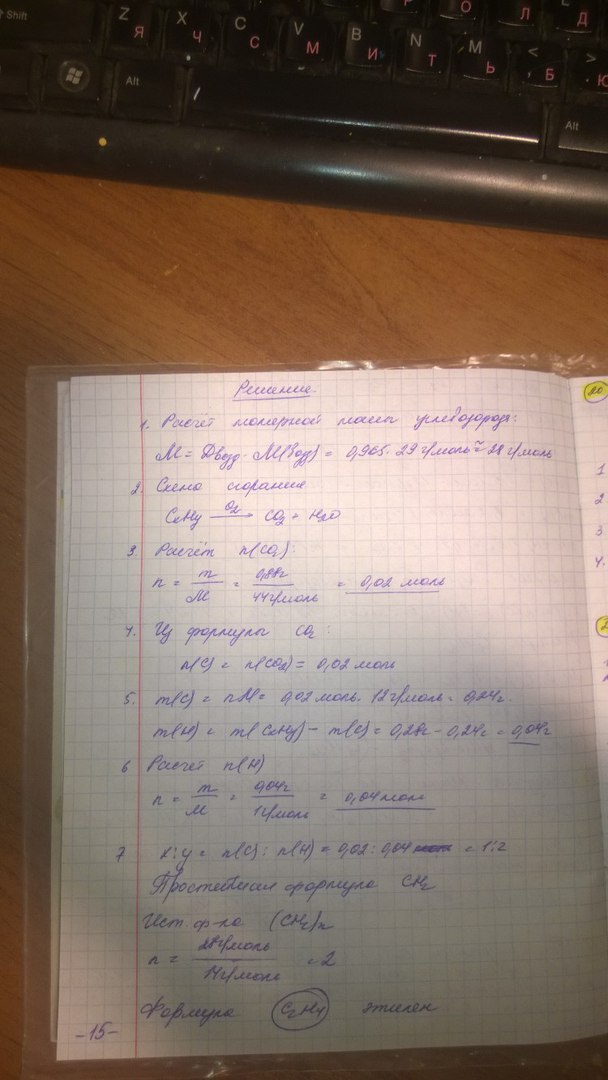 Shift
Z Я
X Ч
C С
V М
B И
N Т
M Ь
< Б
> Ю
О
Л
Д
Alt
Alt
Решение.
1. Расчёт молярной массы углеводорода:
M = Dвозд · M(возд) = 0,965 · 29 г/моль ≈ 28 г/моль
2. Схема сгорания
CxHy —O2→ CO2 + H2O
3. Расчёт n(CO2):
n = m/M = 0,88г/44г/моль = 0,02 моль
4. Из формулы CO2:
n(C) = n(CO2) = 0,02 моль
5. m(C) = nM = 0,02 моль · 12 г/моль = 0,24г.
m(H) = m(CxHy) – m(C) = 0,28г – 0,24г = 0,04г
6 Расчет n(H)
n = m/M = 0,04г/1г/моль = 0,04 моль
7 x:y = n(C) : n(H) = 0,02 : 0,04 = 1:2
Простейшая формула CH2
Ист. ф-ла (CH2)n
n = 28г/моль/14г/моль = 2
Формула C2H4 этилен
-15-
20
1
2
3
4.